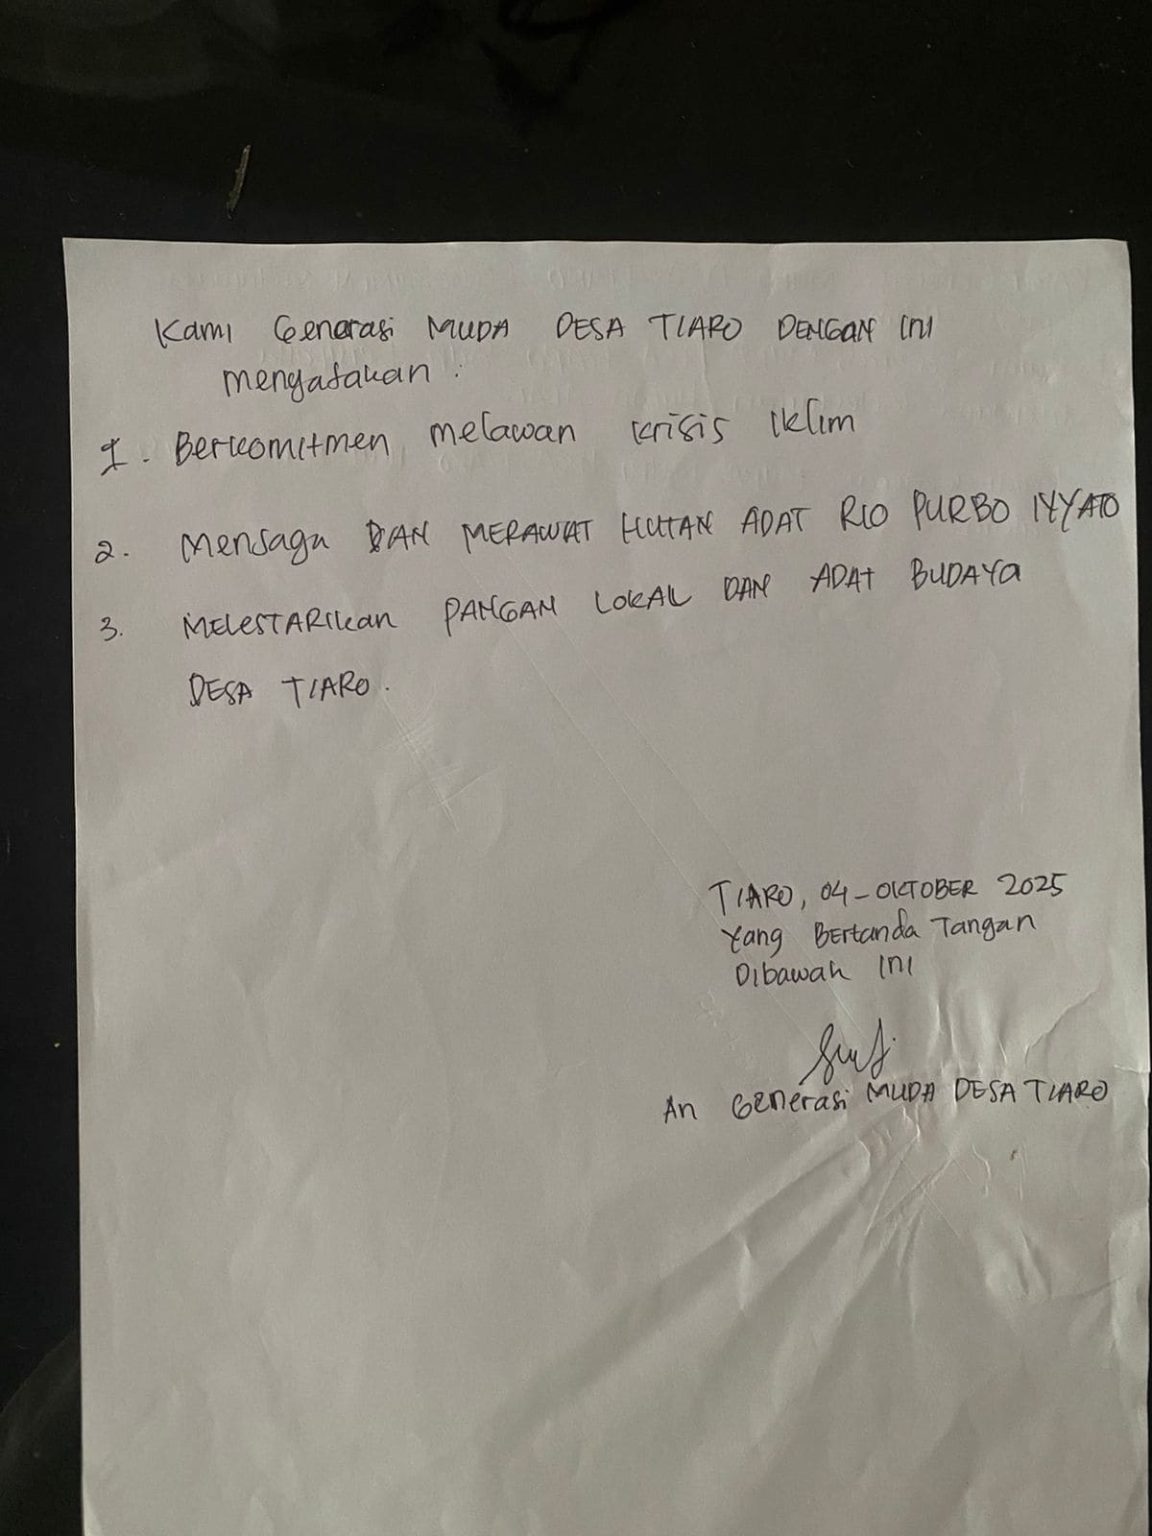 Kami Generasi MUDA DESA TIARO DENGAN INI
mengatakan :
1. Berkomitmen melawan krisis iklim
2. Menjaga DAN MERAWAT HUTAN ADAT RIO PURBO NYATO
3. MELESTARIkan PANGAN LOKAL DAN ADAT BUDAYA
DESA TIARO.
TIARO, 04-OKTOBER 2025
Yang Bertanda Tangan
Dibawah INI
An Generasi MUDA DESA TIARO